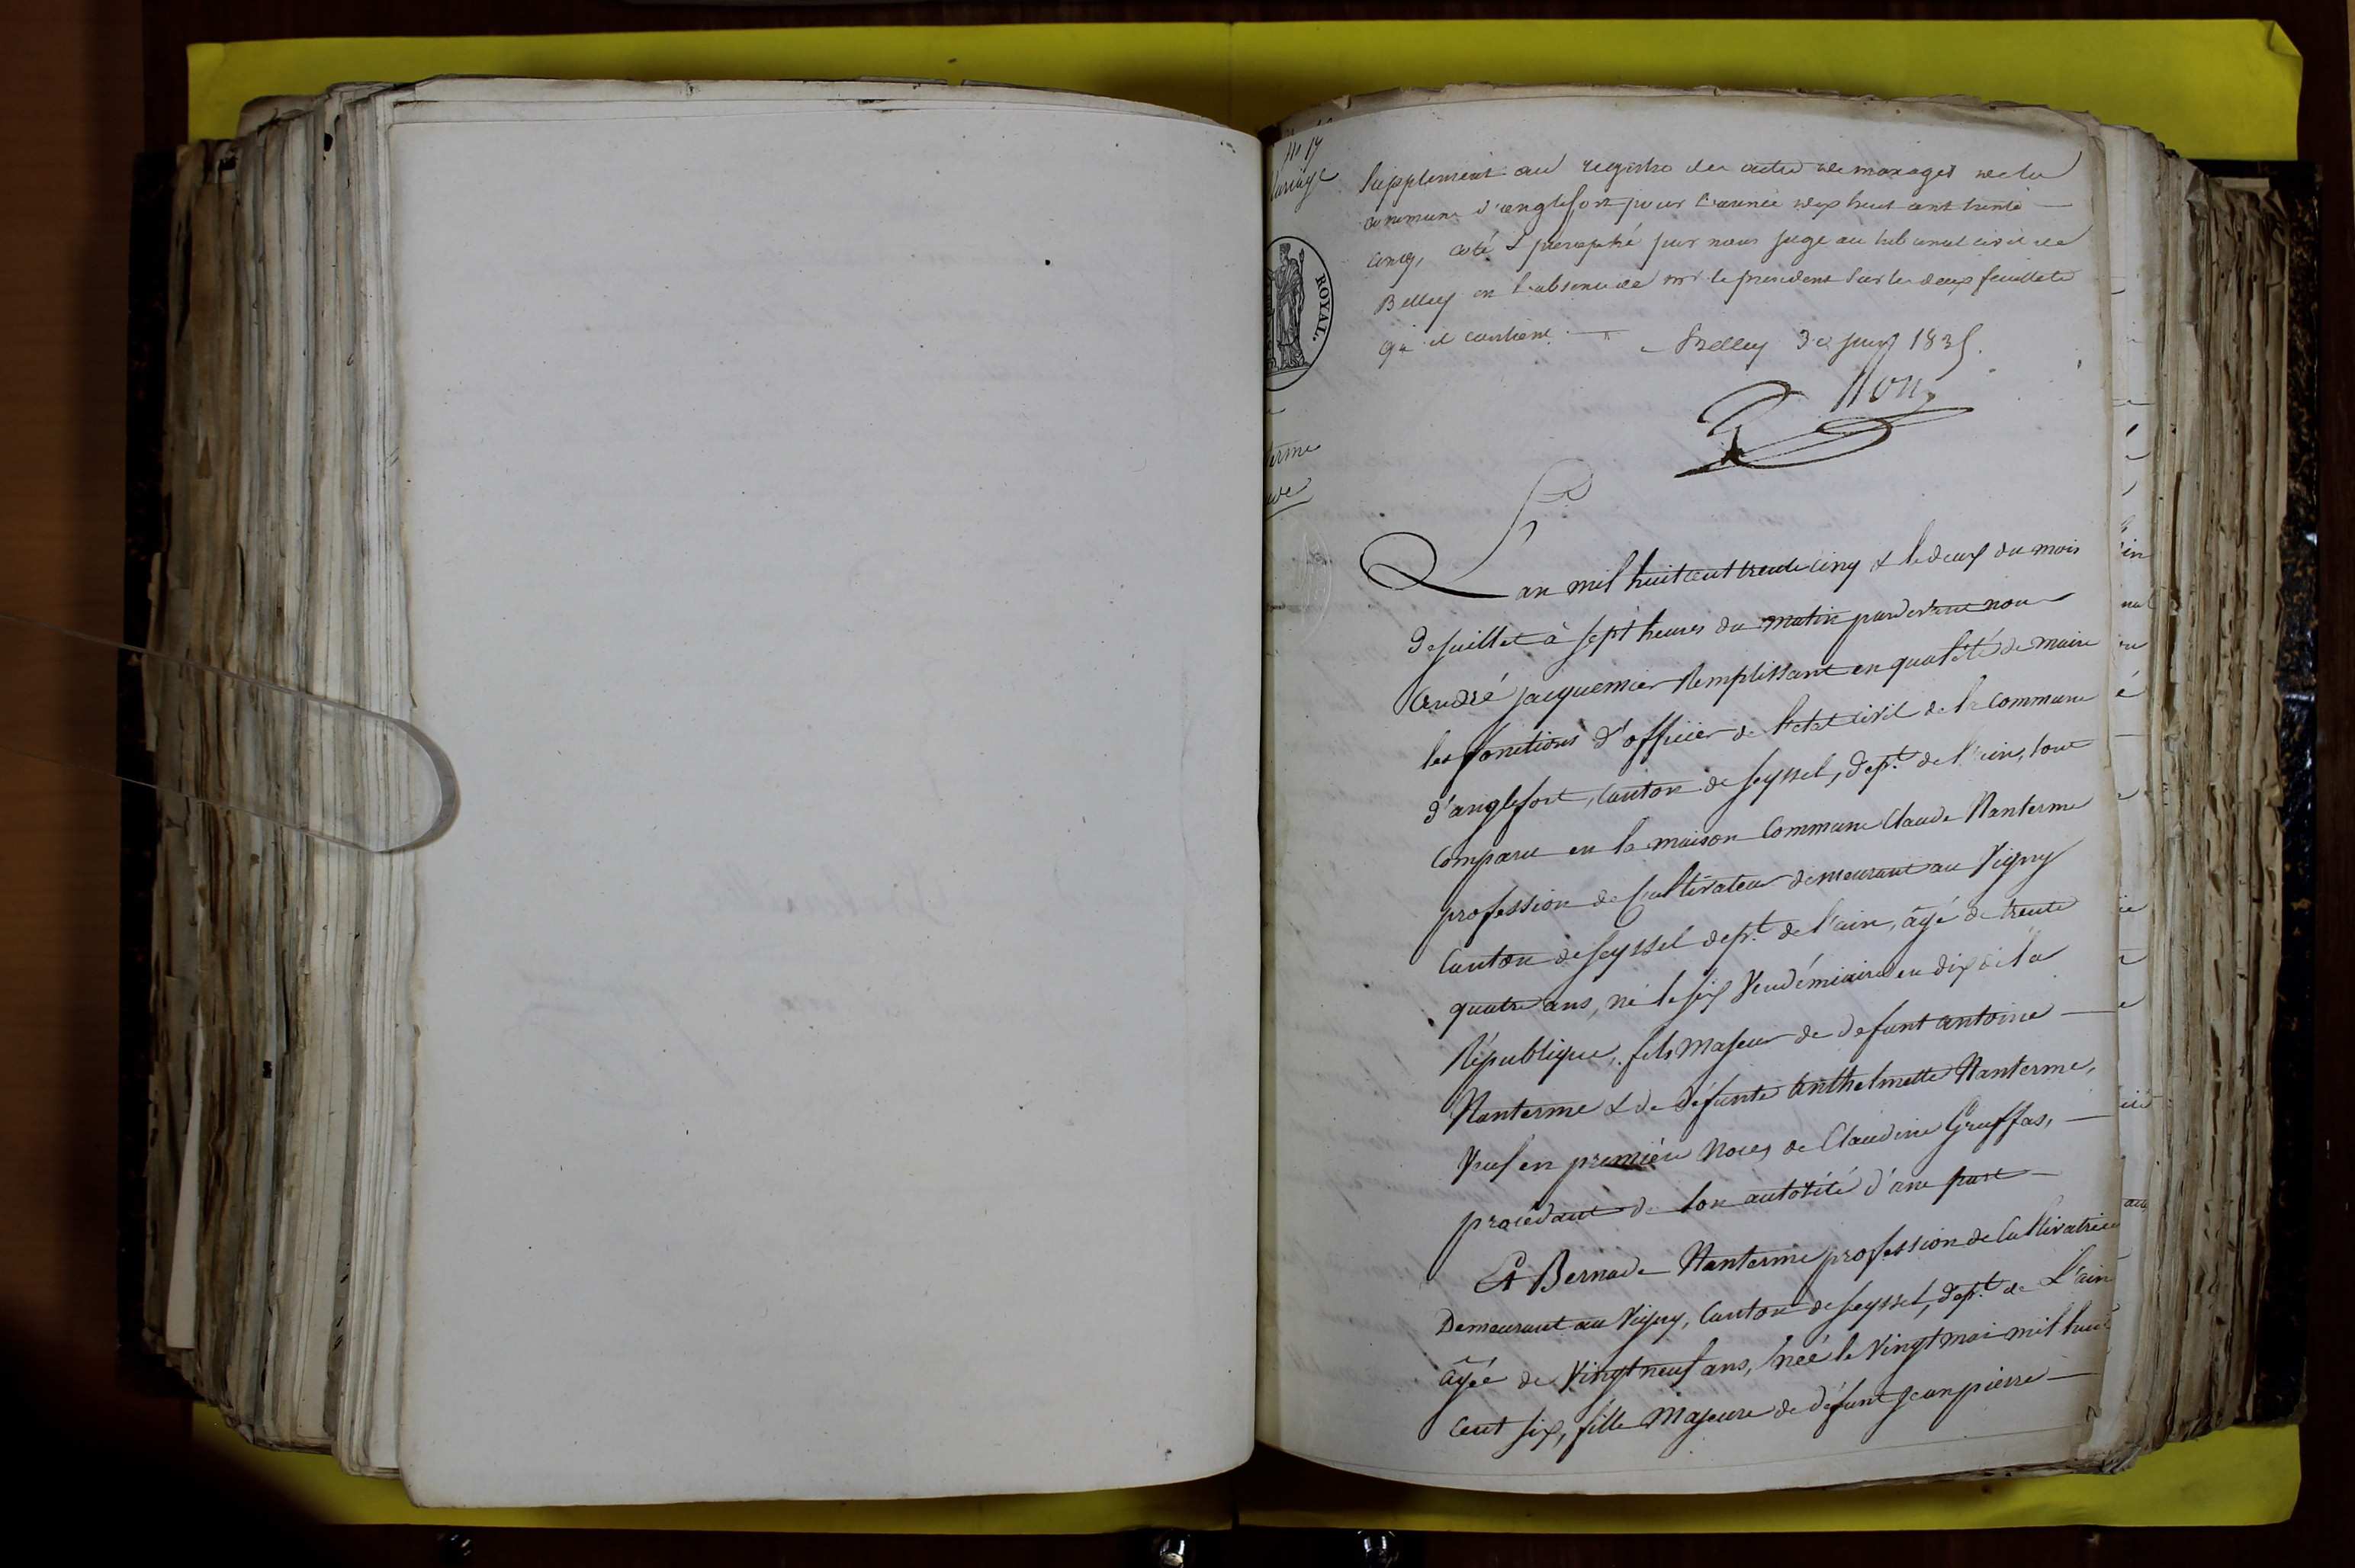 No 17
Mariage
ROYAL.
Supplement au registre des actes de mariages de la
commune d'anglefort pour l'année dix huit cent trente
cinq, coté & paraphé par nous juge au tribunal civil de
Belley en l'absence de mr le president sur les deux feuillets
qu'il contient.
Belley 30 juin 1835.
L'an mil huit cent trente cinq & le deux du mois
de juillet à sept heures du matin pardevant nous
André jacquemier Remplissant en qualité de maire
les fonctions d'officier de l'etat civil de la Commune
d'anglefort, Canton de seyssel, dept. de l'ain, sont
Comparu en la maison Commune Claude Nanterme
profession de Cultivateur demeurant au Vigny
Canton de seyssel dept. de l'ain, âgé de trente
quatre ans, né le six Vendémiaire an dix de la
République, fils Majeur de defunt antoine
Nanterme & de défunte Anthelmette Nanterme,
Veuf en première Noces de Claudine Gruffas,
procédant de son autorité d'une part
Et Bernade Nanterme profession de Cultivatrice
Demeurant au Vigny, Canton de seyssel, dept. de L'ain
âgée de Vingt neuf ans, née le Vingt mai mil huit
Cent six, fille Majeure de défunt jean pierre